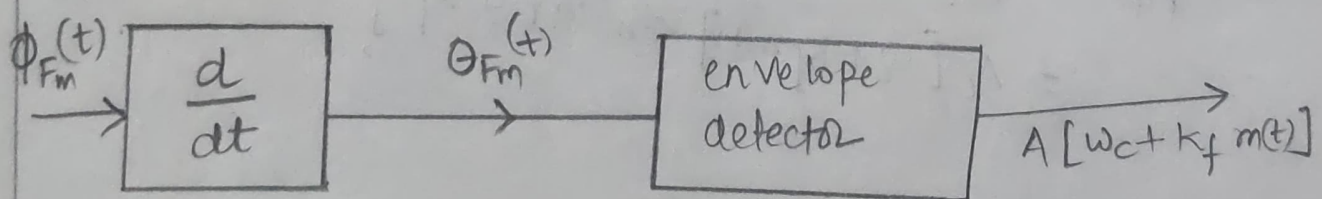 ϕFm(t)
d
dt
θFm(t)
envelope
detector
A[ωc+Kf m(t)]